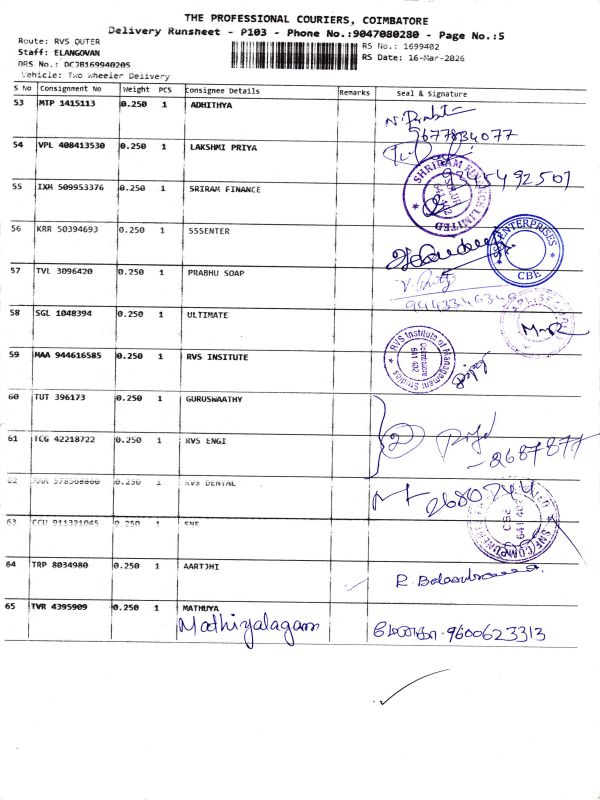 THE PROFESSIONAL COURIERS, COIMBATORE
Delivery Runsheet - P103 - Phone No.:9047080280 - Page No.:5
Route: RVS OUTER
RS No.: 1699402
Staff: ELANGOVAN
RS Date: 16-Mar-2026
DRS No.: DCJB169940205
Vehicle: Two Wheeler Delivery
S No Consignment No Weight PCS Consignee Details Remarks Seal & Signature
53 MTP 1415113 0.250 1 ADHITHYA
9677834077
54 VPL 408413530 0.250 1 LAKSHMI PRIYA
55 IXM 509953376 0.250 1 SRIRAM FINANCE
SHRIRAM FINANCE LIMITED
56 KRR 50394693 0.250 1 SSSENTER
ENTERPRISES
CBE
57 TVL 3096420 0.250 1 PRABHU SOAP
58 SGL 1048394 0.250 1 ULTIMATE
59 MAA 944616585 0.250 1 RVS INSITUTE
RVS Institute of Management Studies
Coimbatore
641 402
60 TUT 396173 0.250 1 GURUSWAATHY
61 TCG 42218722 0.250 1 RVS ENGI
2
2687877
62 0.250 1 RVS DENTAL
63 CCU 911321045 0.250 1 SNF
CBE
641 402
64 TRP 8034980 0.250 1 AARTJHI
65 TVR 4395909 0.250 1 MATHUYA
Mathiyalagan
மேனகா. 9600623313